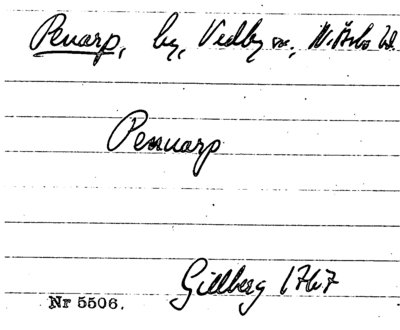 Penarp, by, Vedby sn, N. Åsbo hd.
Pennarp
Gillberg 1767
Nr 5506.